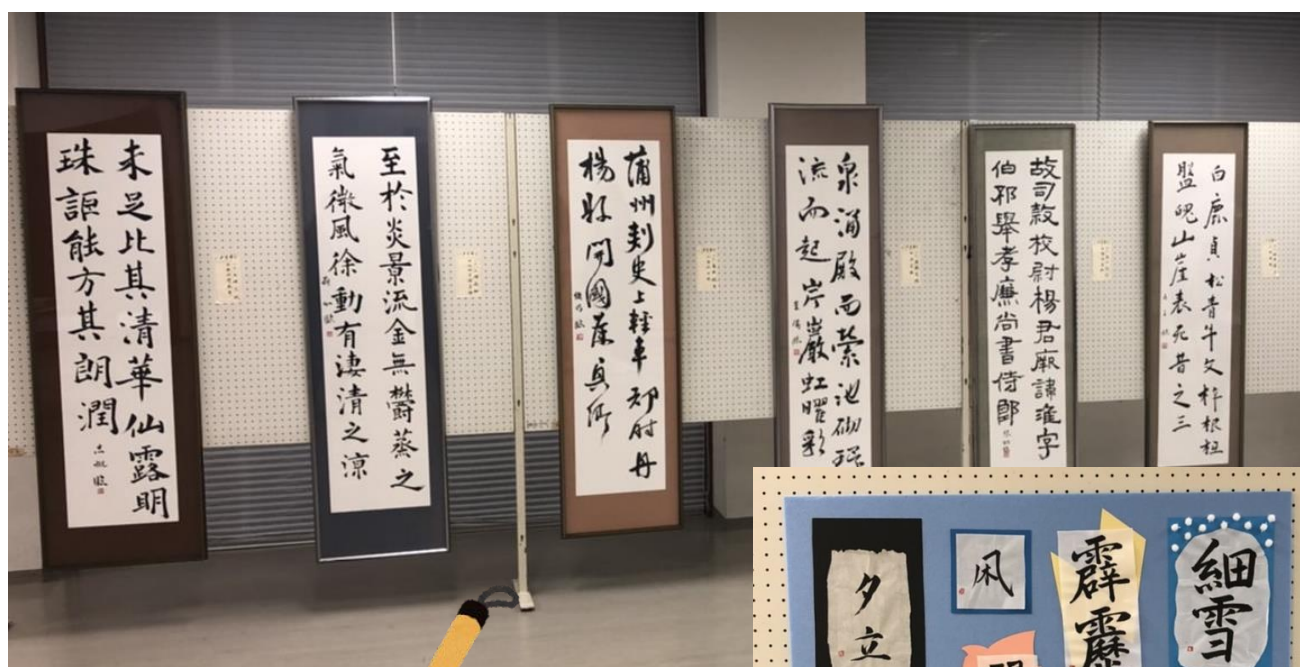 未足比其清華仙露明
珠詎能方其朗潤
至於炎景流金無鬱蒸之
氣微風徐動有淒清之涼
蒲州刺史上輕車都尉丹
楊縣開國
泉涌殿而縈池砌環
流而起岸巖虹曜彩
故司隸校尉楊君厥諱淮字
伯邳舉孝廉尚書侍郎
白鹿貞松青牛文梓根柢
盤魄山崖表昔之三
夕立
凩
霹靂
細雪